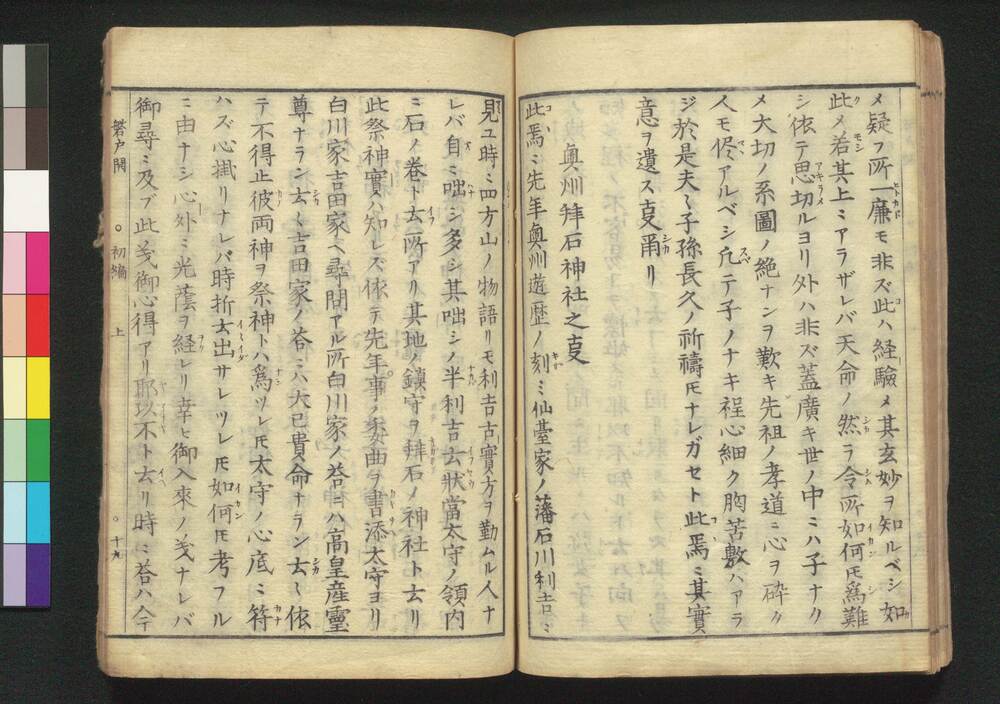 メ疑フ所一廉モ非ズ此ハ経驗メ其玄妙ヲ知ルベシ如
此メ若其上ミアラザレバ天命ノ然ラ令所如何モ爲難
シ依テ思切ルヨリ外ハ非ズ蓋廣キ世ノ中ミハ子ナク
メ大切ノ系圖ノ絶ナンヲ歎キ先祖ノ孝道ミ心ヲ砕ク
人モ侭アルベシ凡テ子ノナキ程心細ク胸苦敷ハアラ
ジ於是夫々子孫長久ノ祈禱モナレガセト此焉ミ其實
意ヲ遺ス支爾リ
奥州拜石神社之支
此焉ミ先年奥州遊歴ノ刻ミ仙臺家ノ藩石川利吉ミ
見ユ時ミ四方山ノ物語リモ利吉古實方ヲ勤ムル人ナ
レバ自ミ咄シ多シ其咄シノ半利吉云狀當太守ノ領内
ミ石ノ巻ト云所アリ其地ノ鎮守ヲ拜石ノ神社ト云リ
此祭神實ハ知レズ依テ先年事ノ委曲ヲ書添太守ヨリ
白川家吉田家ヘ尋問アル所白川家ノ答ハ高皇産靈
尊ナラン云々吉田家ノ答ミハ大己貴命ナラン云々依
テ不得止彼両神ヲ祭神トハ爲ツレモ太守ノ心底ミ符
ハズ心掛リナレバ時折云出サレツレモ如何モ考フル
ミ由ナシ心外ミ光蔭ヲ経レリ幸ヒ御入來ノ義ナレバ
御尋ミ及ブ此義御心得アリ耶以不ト云リ時ミ答ハ今
磐戸開 ○初編 上 ○十九